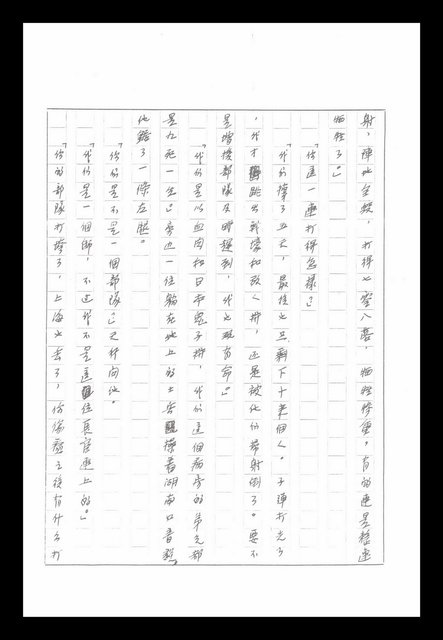 射,陣地全毀,打得七零八落,犧牲慘重,有的連是整連
犧牲了。」
「你這一連打得怎樣?」
「我們撐了五天,最後也只剩下十來個人。子彈打光了
,我才跳出戰壕和敵人拼,還是被他們掃射倒了。要不
是增援部隊及時趕到,我也現有命。」
「我們是以血肉和日本鬼子拼,我們這個病房的弟兄都
是九死一生。」旁邊一位躺在地上的士兵操著湖南口音說,
他鋸了一條左腿。
「你們是不是一個部隊?」之行問他。
「我們是一個師,不過我不是這位長官連上的。」
「你的部隊打垮了,上海也丟了,你傷癒之後有什麼打